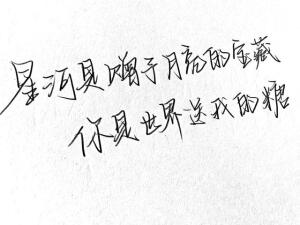 星河是赠予月亮的宝藏
你是世界送我的糖